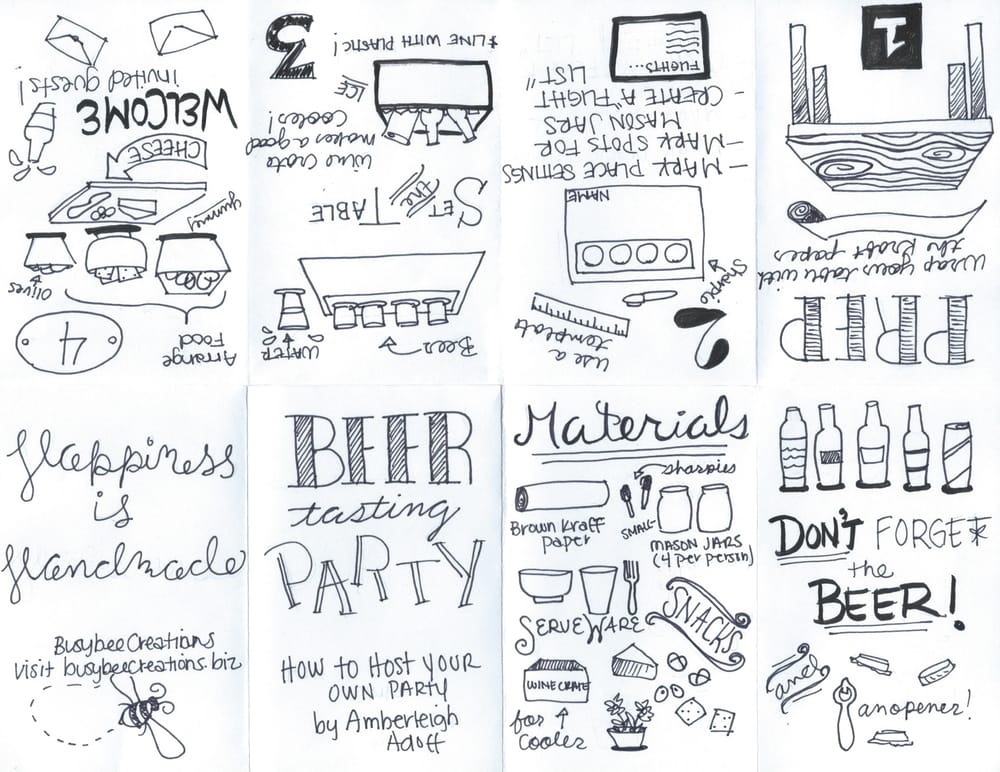 BEER
tasting
PARTY
HOW TO HOST YOUR
OWN PARTY
by Amberleigh
Adoff
Materials
sharpies
Brown Kraft
paper
SMALL
MASON JARS
(4 per person)
SERVEWARE
SNACKS
WINE CRATE
for
cooler
DON'T FORGET
the
BEER!
and
an opener!
PREP
Wrap your table with
the Kraft paper
1
2
use a
template
Sharpie
NAME
- MARK PLACE SETTINGS
- MARK SPOTS FOR
MASON JARS
- CREATE A "FLIGHT
LIST"
FLIGHTS...
Beer
WATER
SET the TABLE
wine crate
makes a good
cooler!
ICE
*LINE WITH PLASTIC!
3
Arrange
Food
4
olives
yummy
CHEESE
WELCOME
invited guests!
Happiness
is
Handmade
BusybeeCreations
visit busybeecreations.biz